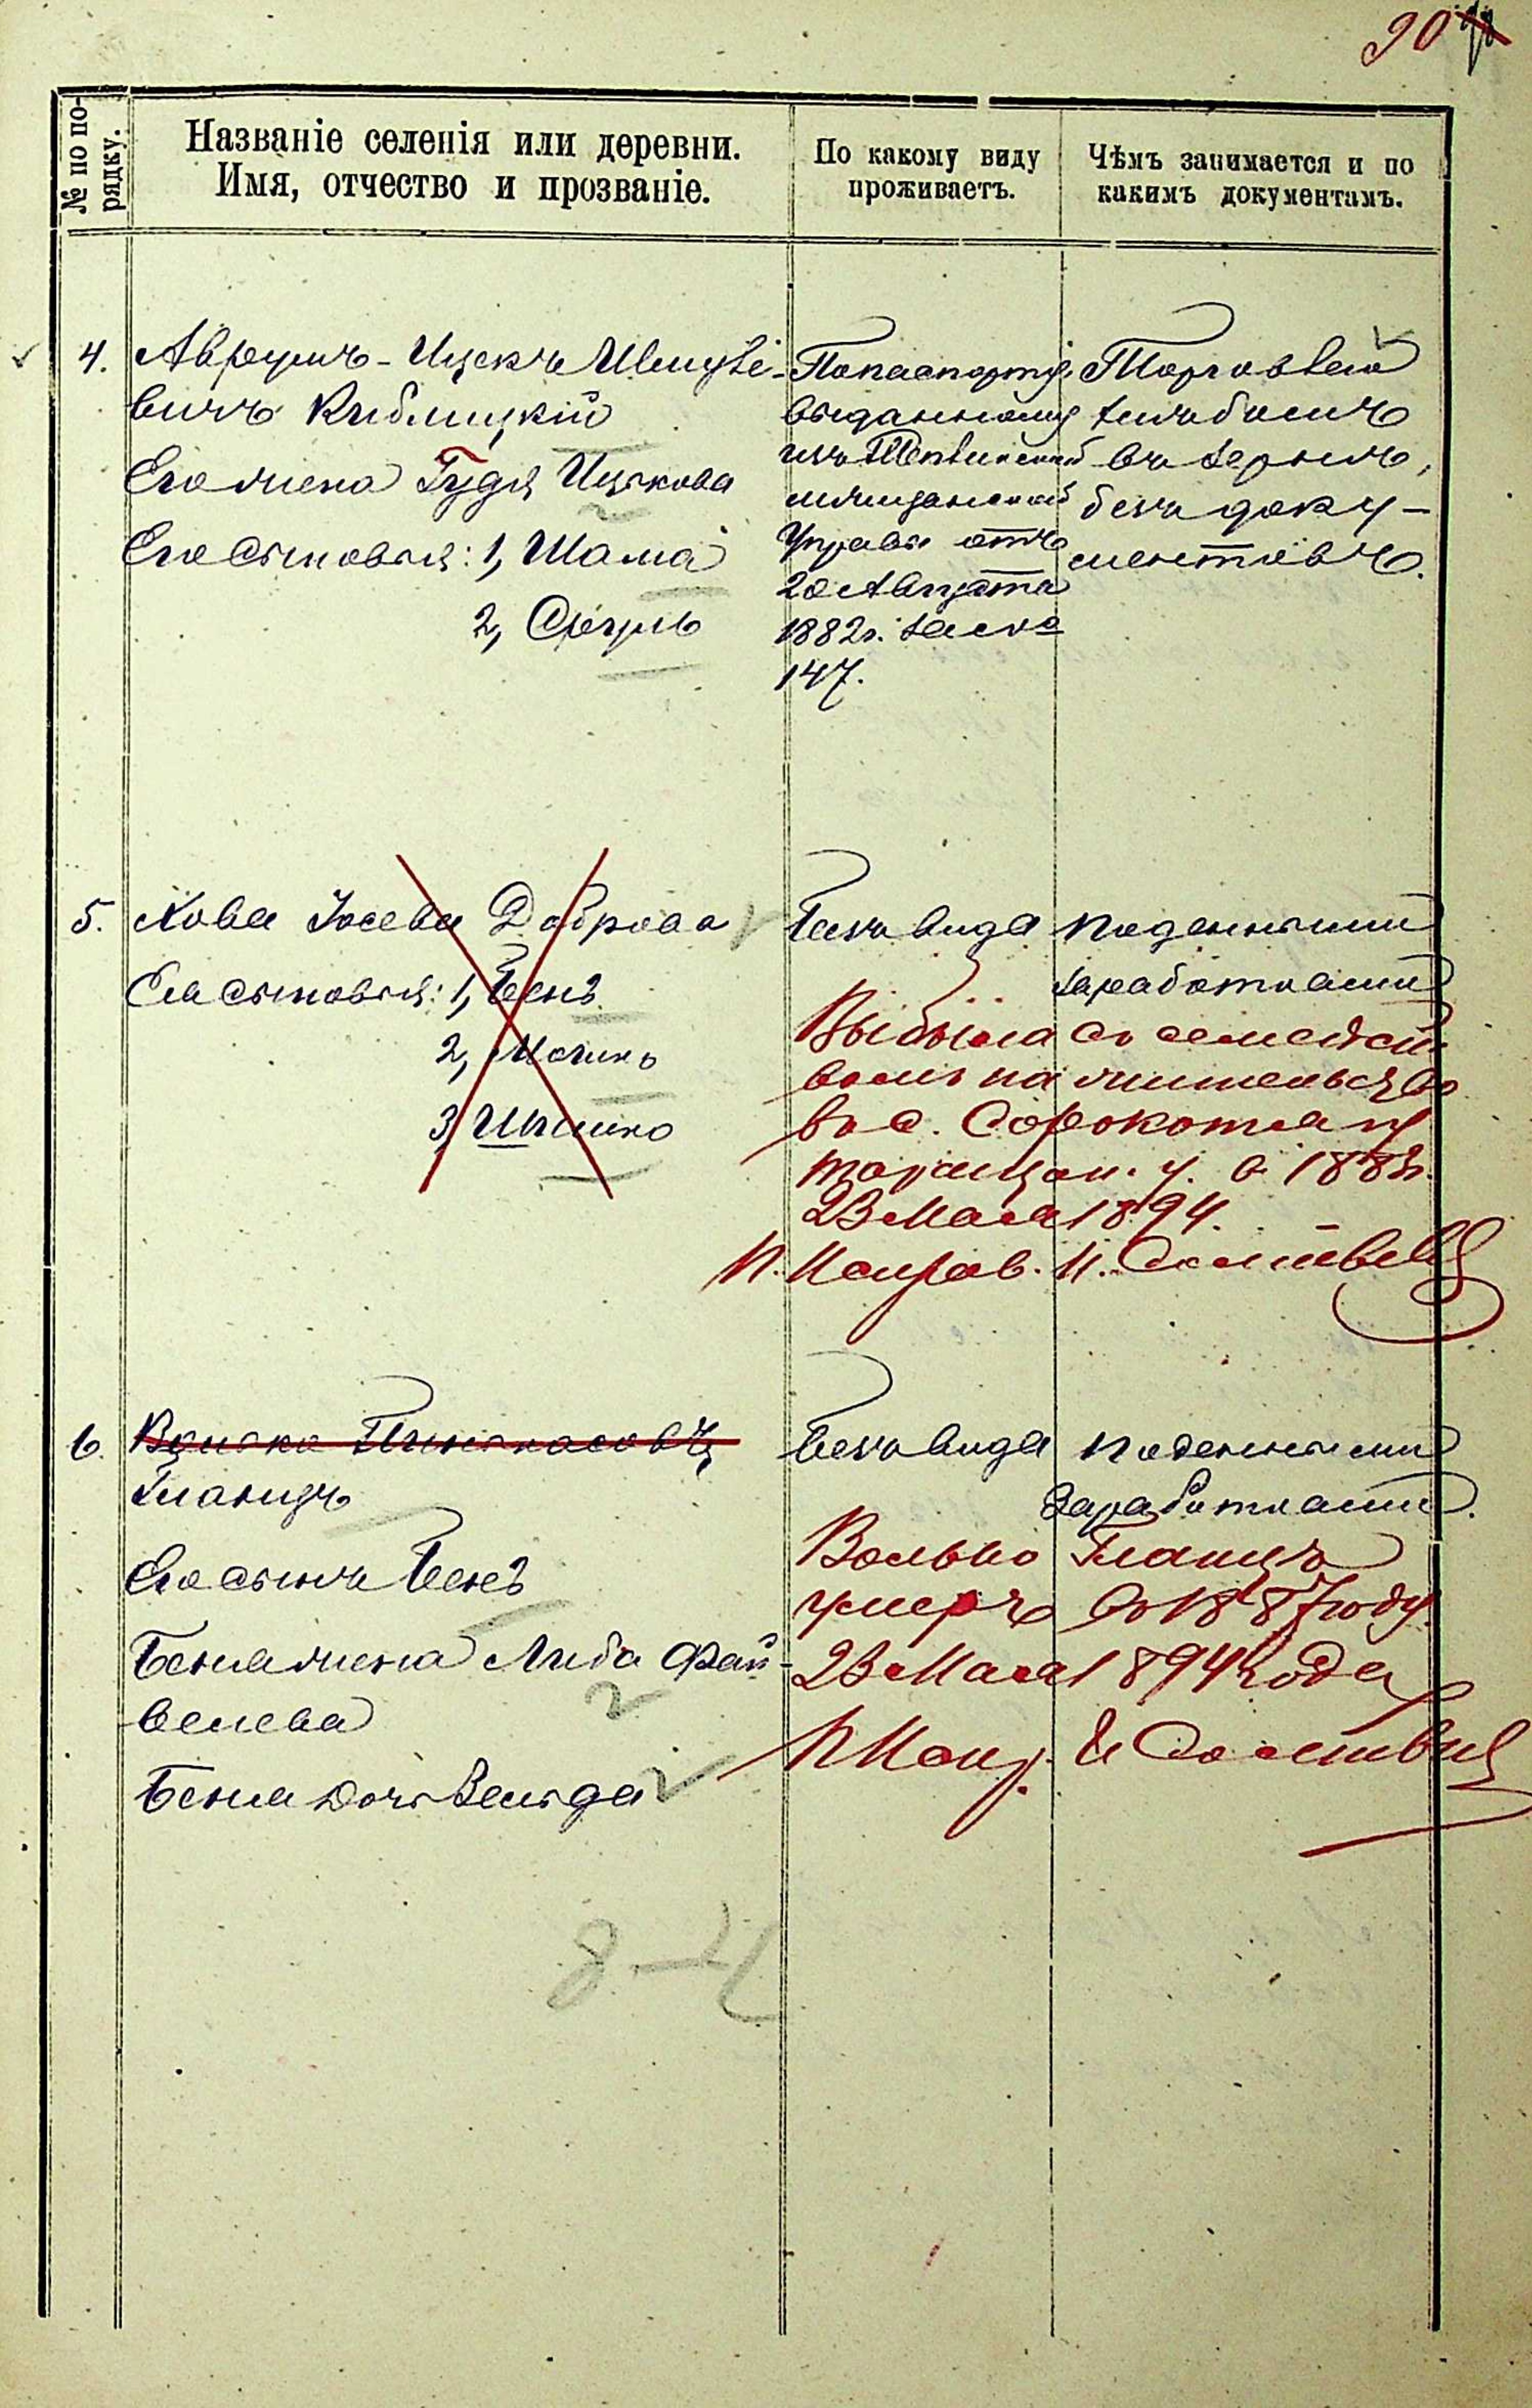 90
№ по по-
рядку.
Названіе селенія или деревни.
Имя, отчество и прозваніе.
По какому виду
проживаетъ.
Чѣмъ занимается и по
какимъ документамъ.
4. Аврумъ-Ицекъ Шмулі-
вичъ Киблицкій
Его жена Гудя Ицкова
Его сыновья: 1, Шама
2, Сруль
По паспорту,
выданному
изъ
мѣщанской
Управы отъ
20 Августа
1882 г. за №
147.
Торговлею
хлѣбомъ
въ зернѣ,
безъ доку-
ментовъ.
5. Хова Іосева Доброва
Ея сыновья: 1, Бенъ
2,
3,
Безъ вида
поденными
заработками
Выбыла съ семейст
вомъ на жительство
въ с. Сорокотягу
таращан. у. в 1883 г.
23 Мая 1894.
6. Волько Пинькасовъ
Гланцъ
Его сынъ Бенъ
Бена жена Либа Фай-
велева
Бена дочь Зельда
Безъ вида
поденными
заработками.
Волько Гланцъ
умеръ въ 1887 году.
23 Мая 1894 года